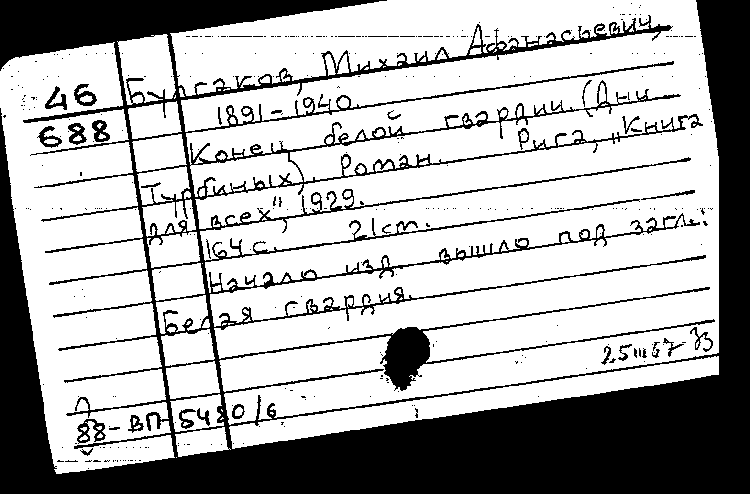 46 Булгаков, Михаил Афанасьевич,
688 1891-1940.
Конец белой гвардии. (Дни
Турбиных). Роман. Рига, „Книга
для всех", 1929.
164 с. 21 cm.
Начало изд. вышло под загл.:
Белая гвардия.
25 III 67
88-ВП-5480/6